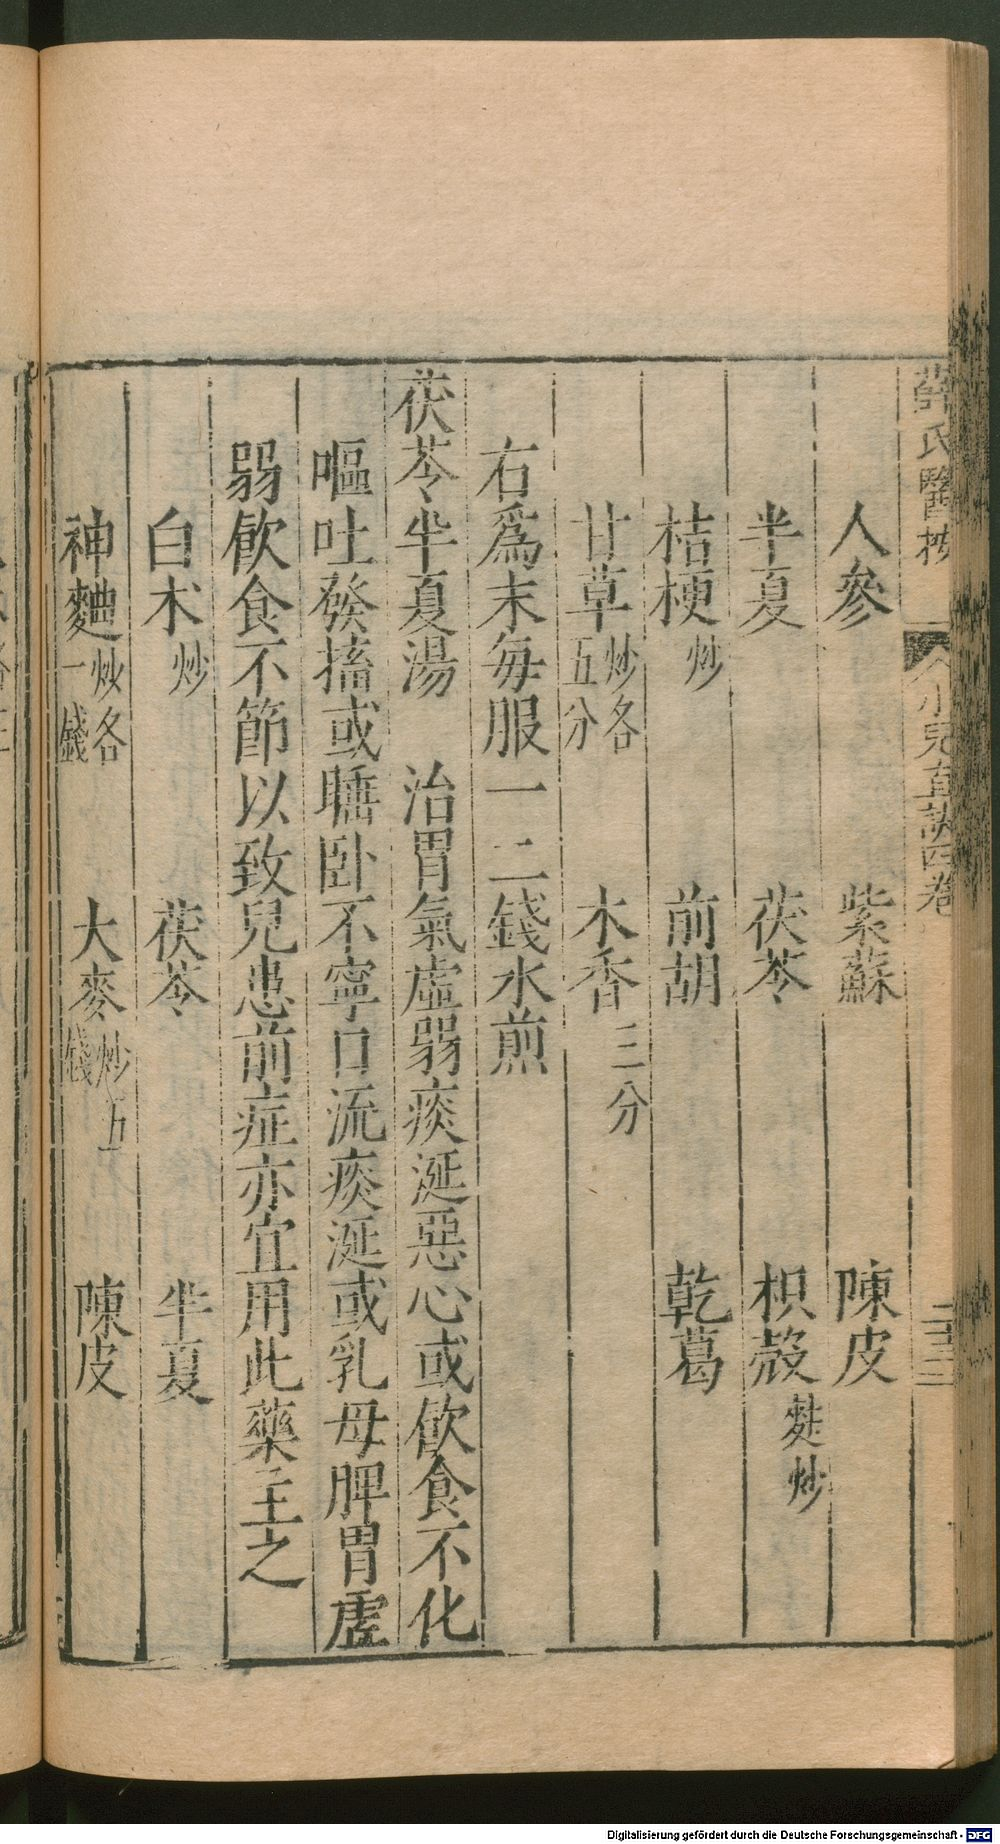 薛氏醫按 小兒直訣四卷 二十三
人參 紫蘇 陳皮
半夏 茯苓 枳殼麩炒
桔梗炒 前胡 乾葛
甘草炒各五分 木香三分
右爲末每服一二錢水煎
茯苓半夏湯 治胃氣虛弱痰涎惡心或飲食不化
嘔吐發搐或睡卧不寧口流痰涎或乳母脾胃虛
弱飲食不節以致兒患前症亦宜用此藥主之
白朮炒 茯苓 半夏
神麯炒各一錢 大麥炒五錢 陳皮
Digitalisierung gefördert durch die Deutsche Forschungsgemeinschaft - DFG